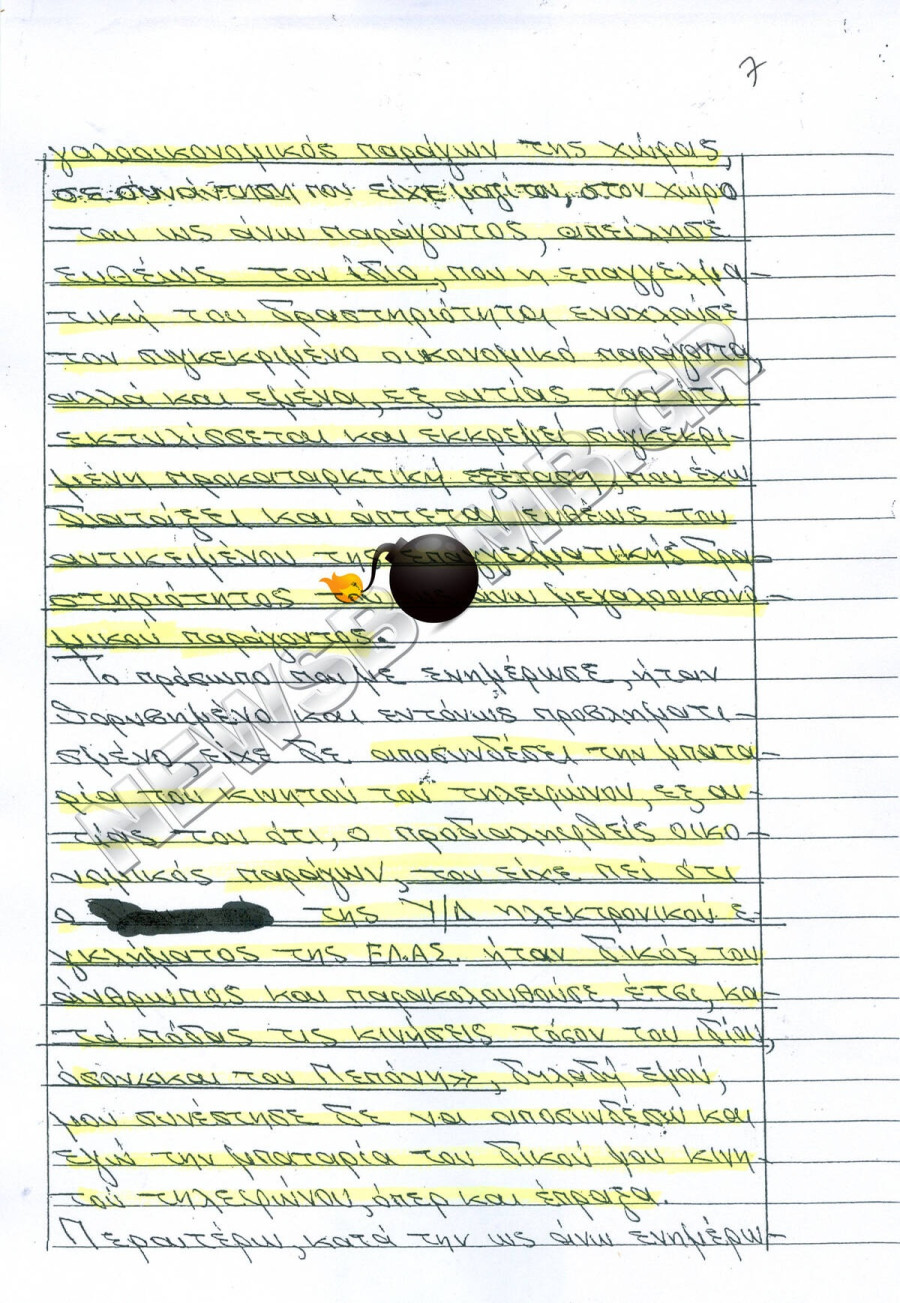 7
γαλοοικονομικός παράγων της χώρας,
σε συνάντηση που είχε μαζί του, στον χώρο
του ως άνω παράγοντος, απείλησε
ευθέως τον ίδιο, που η επαγγελμα-
τική του δραστηριότητα ενοχλούσε
τον συγκεκριμένο οικονομικό παράγοντα,
αλλά και εμένα, εξ αιτίας του ότι
εκτυλίσσεται και εκκρεμεί, συγκεκρι-
μένη προκαταρκτική εξέταση, που έχω
διατάξει και άπτεται ευθέως του
αντικειμένου της επαγγελματικής δρα-
στηριότητος ως άνω μεγαλοοικονο-
μικού παράγοντος.
Το πρόσωπο που με ενημέρωσε, ήταν
θορυβημένο και εντόνως προβληματι-
σμένο, είχε δε αποσυνδέσει την μπατα-
ρία του κινητού του τηλεφώνου, εξ αι-
τίας του ότι, ο προδιαληφθείς οικο-
νομικός παράγων, του είχε πεί ότι
ο της Υ/Δ ηλεκτρονικού ε-
γκλήματος της ΕΛ.ΑΣ. ήταν δικός του
άνθρωπος και παρακολουθούσε, έτσι, κα-
τά πόδας τις κινήσεις τόσον του ιδίου,
όσον «και του Πεπόνη», δηλαδή εμού,
μου συνέστησε δε να αποσυνδέσω και
εγώ την μπαταρία του δικού μου κινη-
τού τηλεφώνου, όπερ και έπραξα.
Περαιτέρω, κατά την ως άνω ενημέρω-
NEWSBOMB.GR